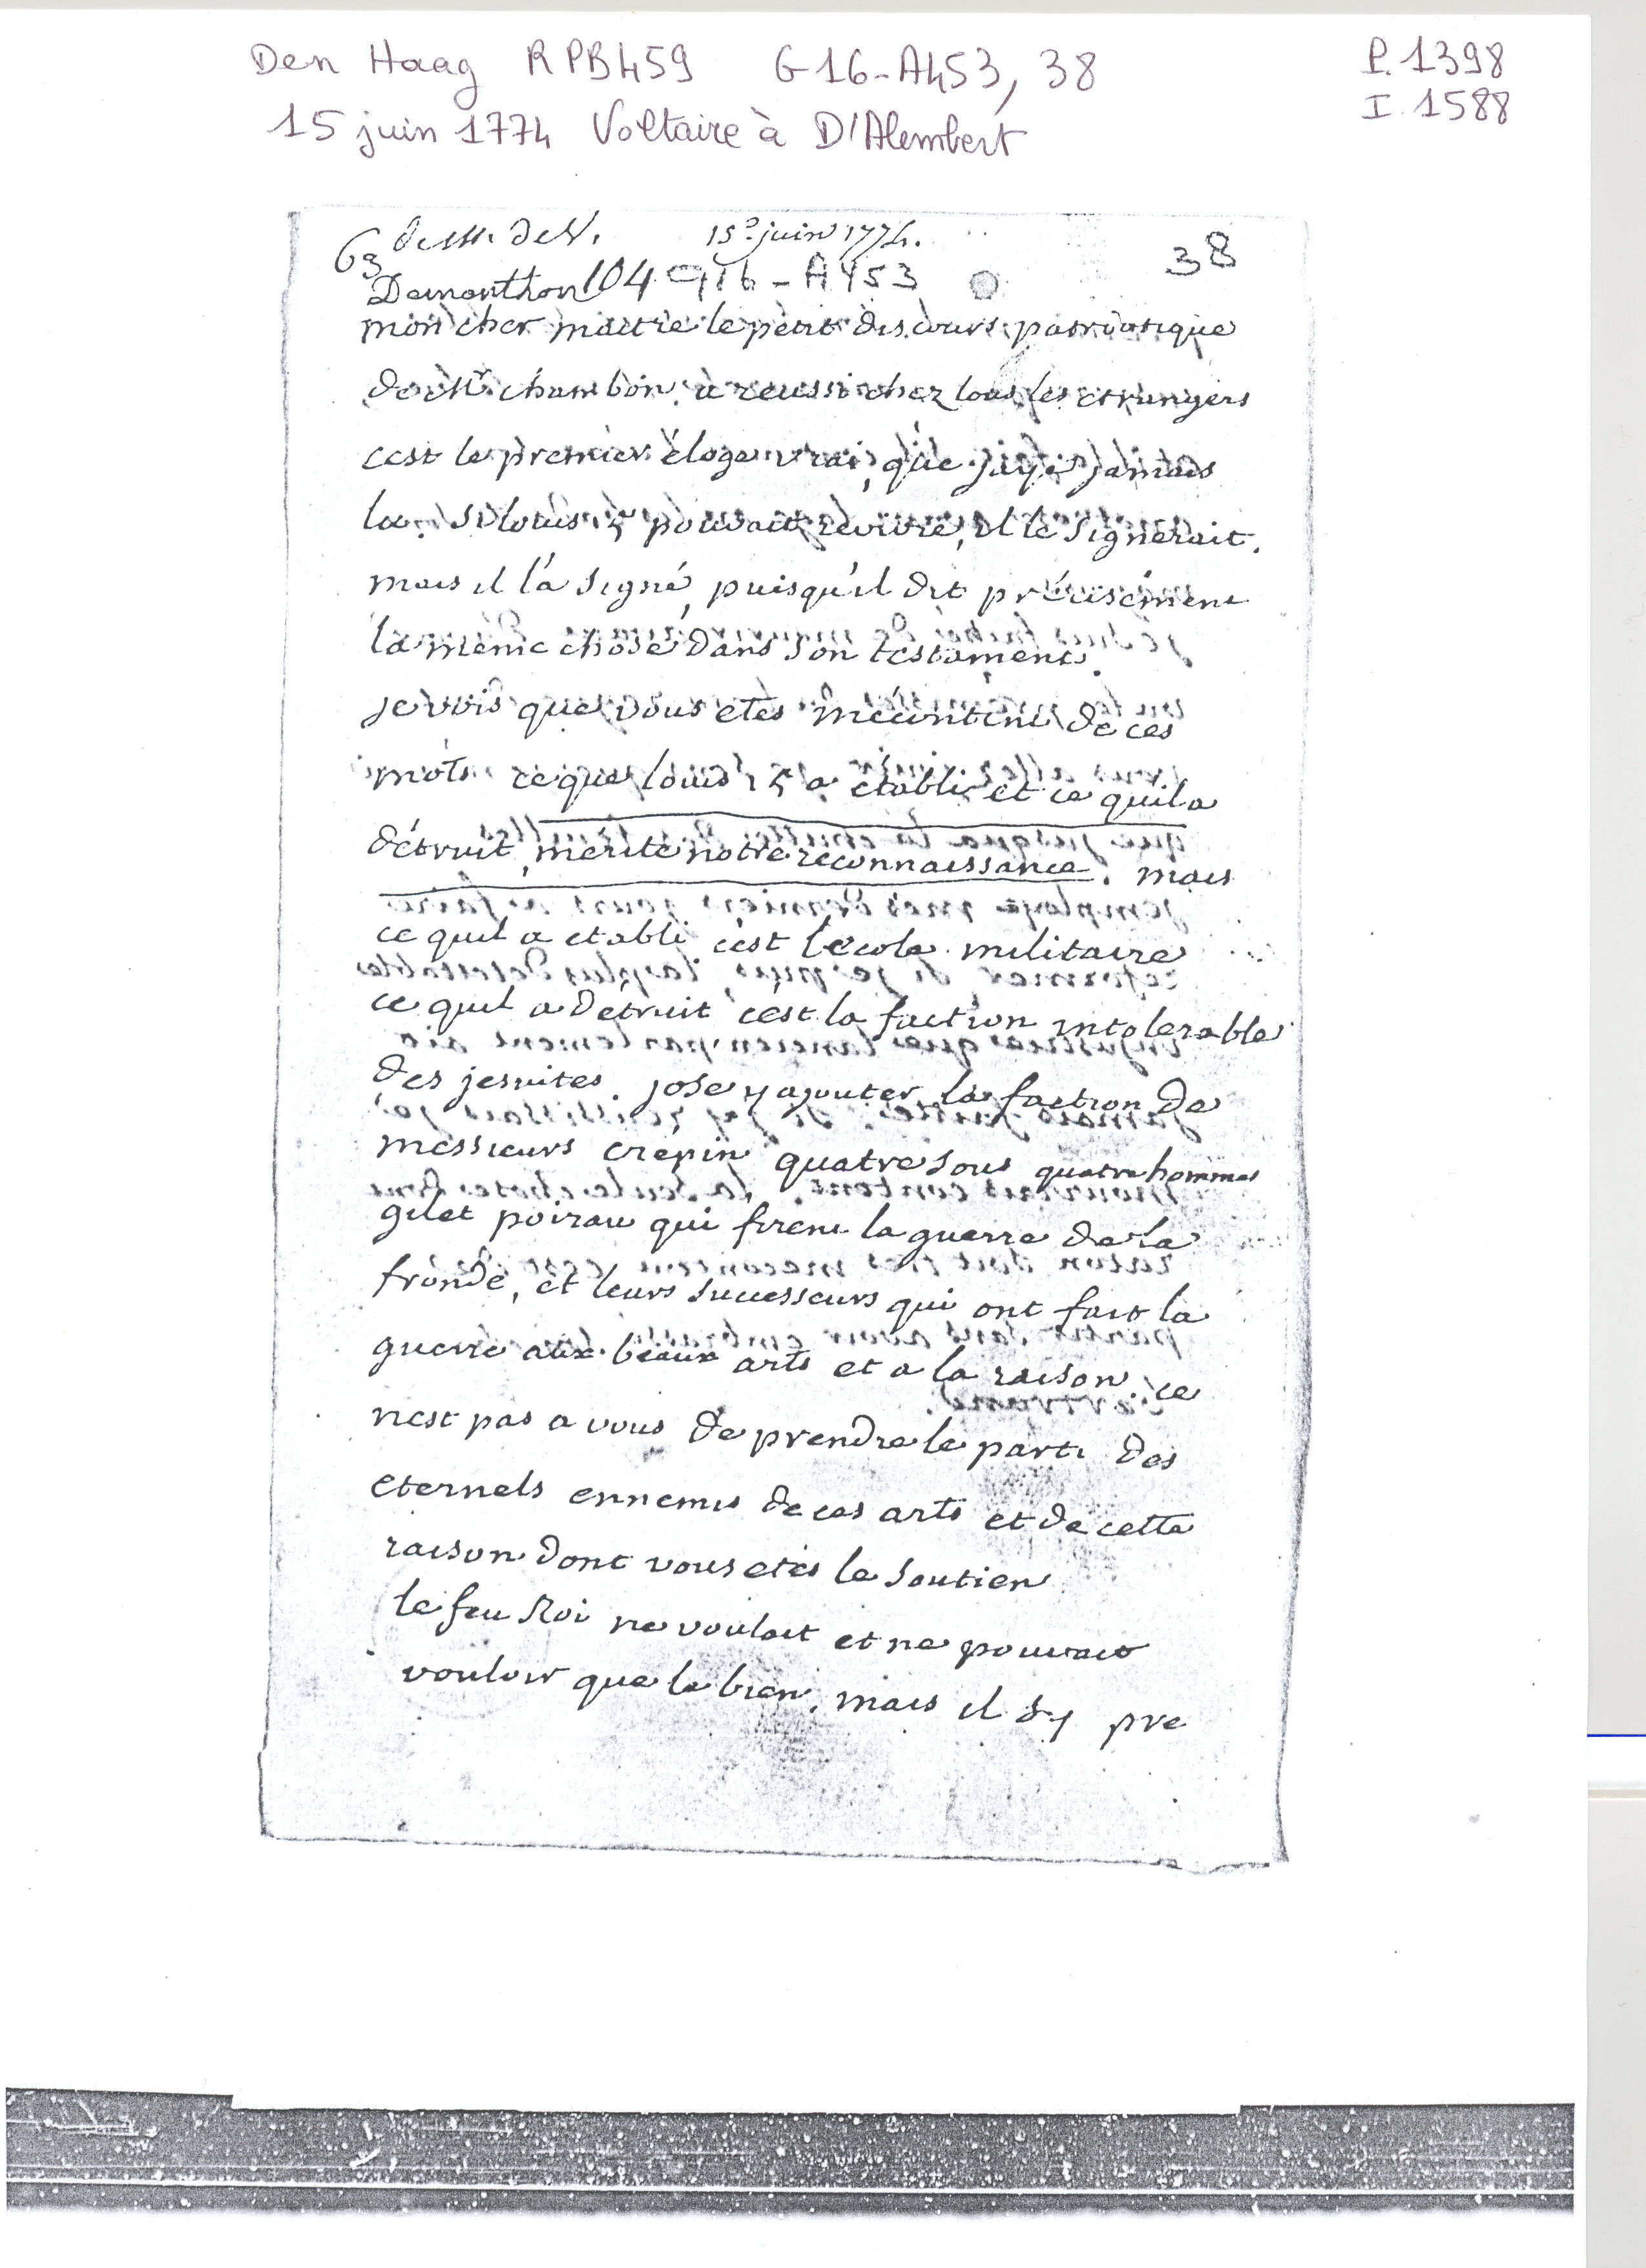 Den Haag RPB459 G16-A453, 38
P. 1398
I. 1588
15 juin 1774 Voltaire à D'Alembert
63 de M. de V. 15e juin 1774.
38
Demonthon 104 G16-A453
mon cher maitre le petit discours patriotique
de Mr chambon, a reussi chez tous les etrangers
cest le premier éloge vrai, que jaye jamais
lu. Si louis 15 pouvait revivre, il le Signerait.
mais il l'a Signé, puisqu'il dit précisément
la même chose dans son testament.
je vois que vous etes mécontent de ces
mots ce que louis 15 a établi et ce quil a
détruit, mérite notre reconnaissance. mais
ce quil a etabli c'est lécole militaire
ce quil a détruit c'est la faction intolerable
des jesuites. jose y ajouter la faction de
messieurs crépin quatresous quatrehommes
gilet poirau qui firent la guerre de la
fronde, et leurs successeurs qui ont fait la
guerre aux beaux arts et a la raison. ce
nest pas a vous de prendre le parti des
eternels ennemis de ces arts et de cette
raison dont vous etes le soutien
le feu Roi ne voulait et ne pouvait
vouloir que le bien, mais il s'y pre